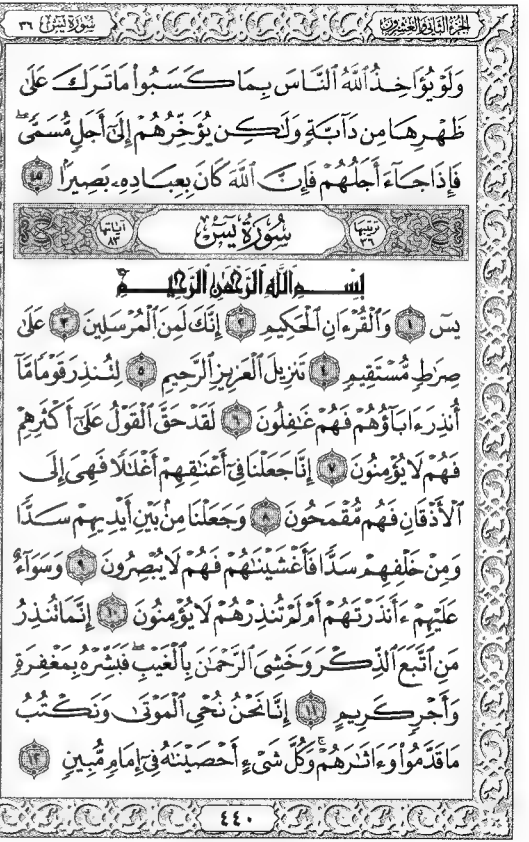 الجزء الثاني والعشرون
سورة يس ٣٦
وَلَوْ يُؤَاخِذُ ٱللَّهُ ٱلنَّاسَ بِمَا كَسَبُوا۟ مَا تَرَكَ عَلَىٰ
ظَهْرِهَا مِن دَآبَّةٍ وَلَـٰكِن يُؤَخِّرُهُمْ إِلَىٰٓ أَجَلٍ مُّسَمًّى ۖ
فَإِذَا جَآءَ أَجَلُهُمْ فَإِنَّ ٱللَّهَ كَانَ بِعِبَادِهِۦ بَصِيرًۢا ٤٥
ترتيبها ٣٦ سُورَةُ يسٓ آياتها ٨٣
بِسْمِ ٱللَّهِ ٱلرَّحْمَـٰنِ ٱلرَّحِيمِ
يسٓ ١ وَٱلْقُرْءَانِ ٱلْحَكِيمِ ٢ إِنَّكَ لَمِنَ ٱلْمُرْسَلِينَ ٣ عَلَىٰ
صِرَٰطٍ مُّسْتَقِيمٍ ٤ تَنزِيلَ ٱلْعَزِيزِ ٱلرَّحِيمِ ٥ لِتُنذِرَ قَوْمًا مَّآ
أُنذِرَ ءَابَآؤُهُمْ فَهُمْ غَـٰفِلُونَ ٦ لَقَدْ حَقَّ ٱلْقَوْلُ عَلَىٰٓ أَكْثَرِهِمْ
فَهُمْ لَا يُؤْمِنُونَ ٧ إِنَّا جَعَلْنَا فِىٓ أَعْنَـٰقِهِمْ أَغْلَـٰلًا فَهِىَ إِلَى
ٱلْأَذْقَانِ فَهُم مُّقْمَحُونَ ٨ وَجَعَلْنَا مِنۢ بَيْنِ أَيْدِيهِمْ سَدًّا
وَمِنْ خَلْفِهِمْ سَدًّا فَأَغْشَيْنَـٰهُمْ فَهُمْ لَا يُبْصِرُونَ ٩ وَسَوَآءٌ
عَلَيْهِمْ ءَأَنذَرْتَهُمْ أَمْ لَمْ تُنذِرْهُمْ لَا يُؤْمِنُونَ ١٠ إِنَّمَا تُنذِرُ
مَنِ ٱتَّبَعَ ٱلذِّكْرَ وَخَشِىَ ٱلرَّحْمَـٰنَ بِٱلْغَيْبِ ۖ فَبَشِّرْهُ بِمَغْفِرَةٍ
وَأَجْرٍ كَرِيمٍ ١١ إِنَّا نَحْنُ نُحْىِ ٱلْمَوْتَىٰ وَنَكْتُبُ
مَا قَدَّمُوا۟ وَءَاثَـٰرَهُمْ ۚ وَكُلَّ شَىْءٍ أَحْصَيْنَـٰهُ فِىٓ إِمَامٍ مُّبِينٍ ١٢
٤٤٠